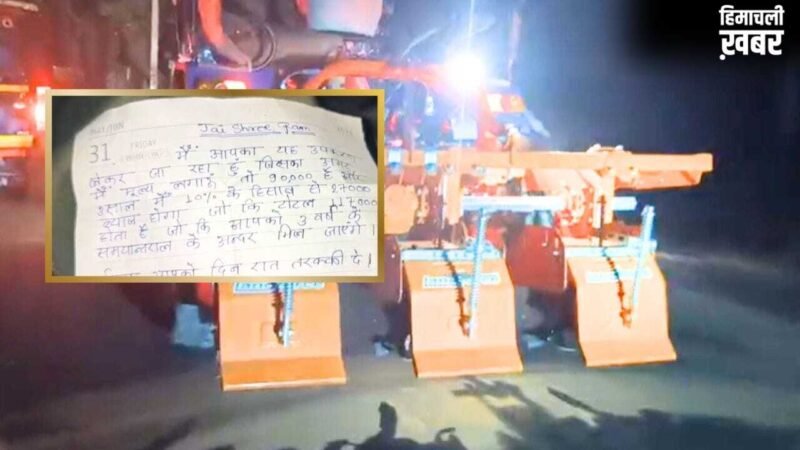 हिमाचली
ख़बर
MAY/JUN
Jai Shree Ram
31 FRIDAY
मैं आपका यह उपकरण
लेकर जा रहा हूँ जिसका अगर
मैं मूल्य लगाऊँ तो 90,000 है और
3 साल में 10% के हिसाब से 27000
ब्याज होगा जो कि टोटल 117000
होता है जो कि आपको 3 वर्ष के
समयान्तराल के अन्दर मिल जाएंगे।
आपको दिन रात तरक्की दे।